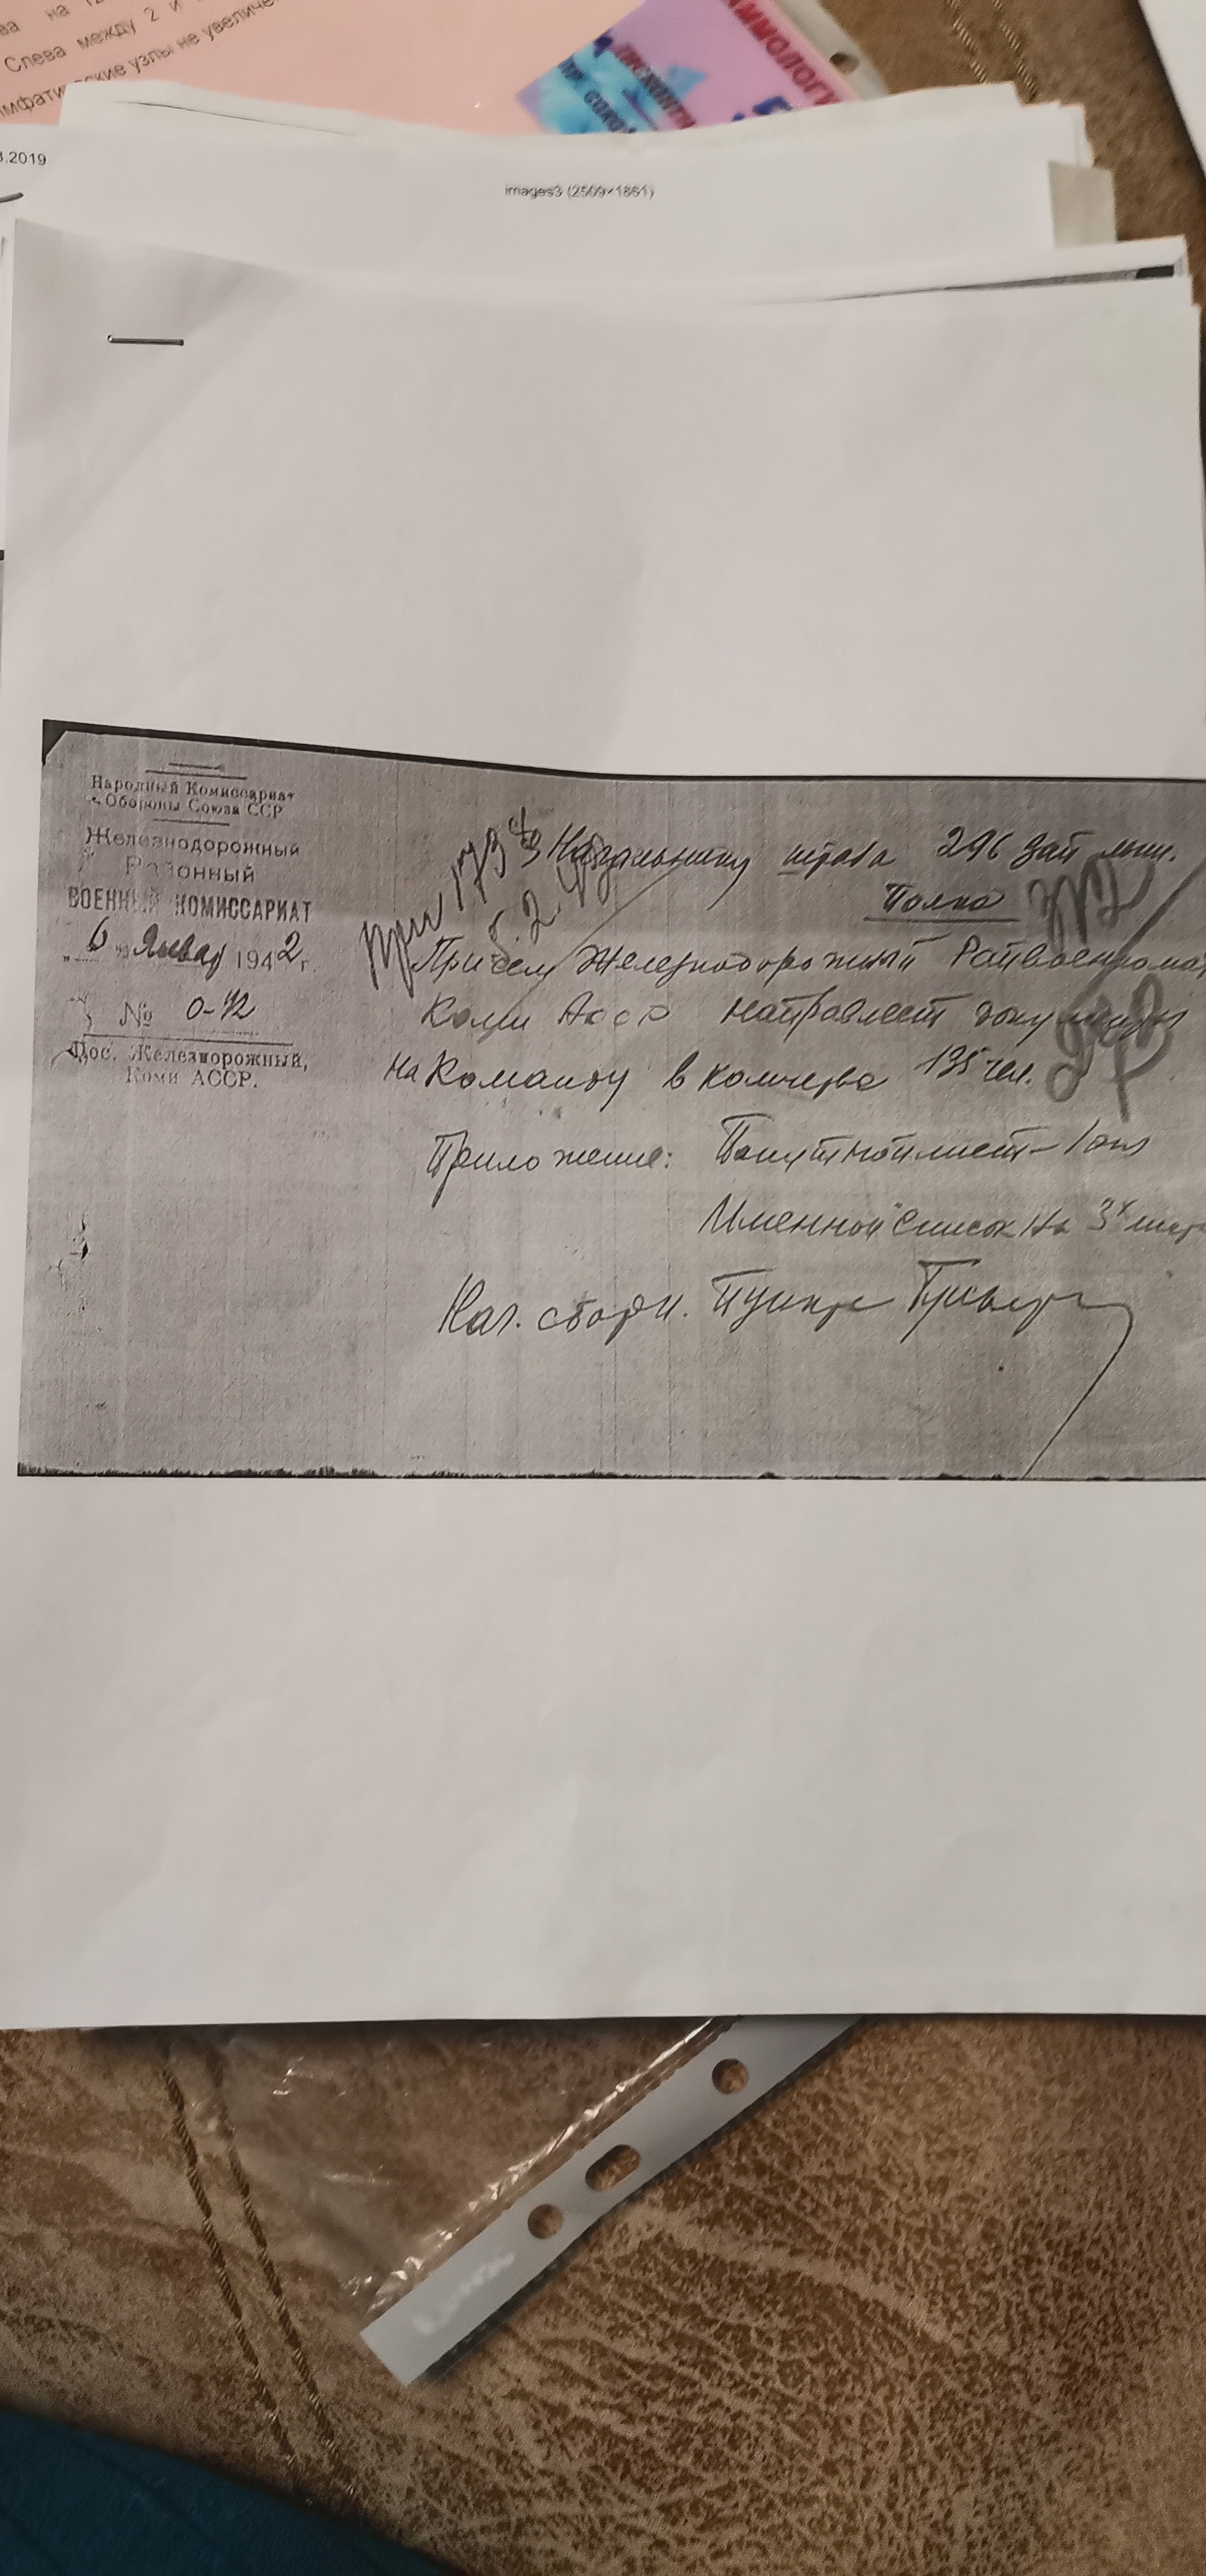 на
Слева между 2 и
узлы не увеличе
.2019
images3 (2509×1861)
Народный Комиссариат
Обороны Союза ССР
Железнодорожный
Районный
ВОЕННЫЙ КОМИССАРИАТ
6 " Январ 1942 г.
№ 0-72
Пос. Железнорожный,
Коми АССР.
173
Начальнику штаба 296 зап лыж.
Полка
При сем Железнодорожный Райвоенкомат
Коми АССР направляет документы
на Команду в количестве 135 чел.
Приложение: Попутной лист - 1 экз
Именной список на 3х лист
Нач. сборн. пункта